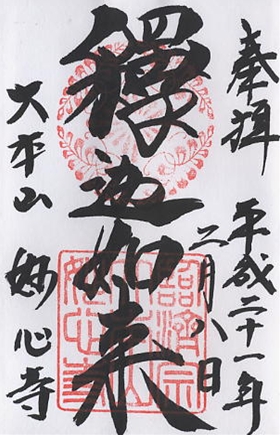 奉拝
平成二十一年
二月八日
釋迦如来
大平山
妙心寺